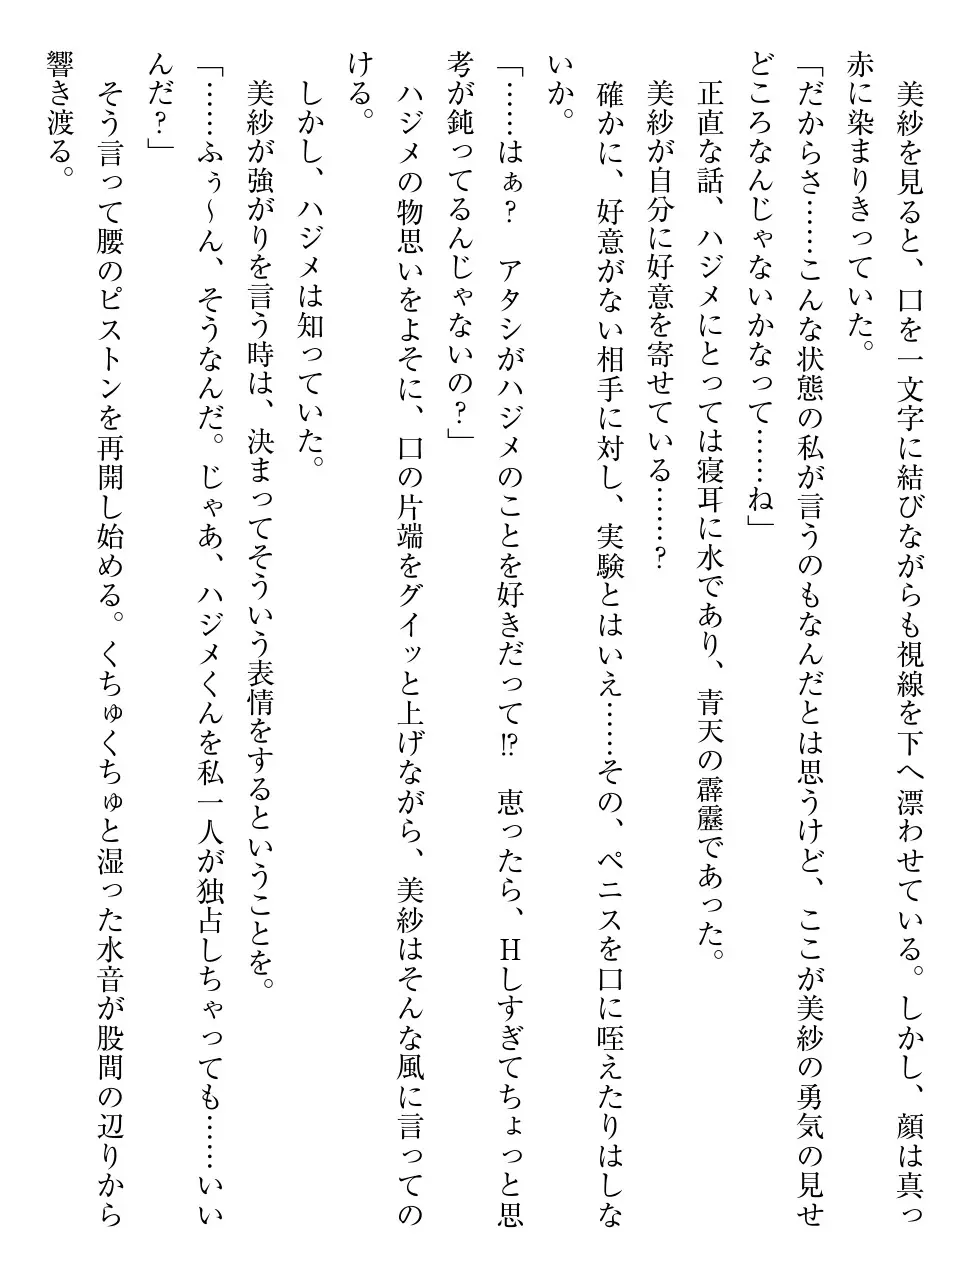 美紗を見ると、口を一文字に結びながらも視線を下へ漂わせている。しかし、顔は真っ
赤に染まりきっていた。
「だからさ……こんな状態の私が言うのもなんだとは思うけど、ここが美紗の勇気の見せ
どころなんじゃないかなって……ね」
正直な話、ハジメにとっては寝耳に水であり、青天の霹靂であった。
美紗が自分に好意を寄せている……？
確かに、好意がない相手に対し、実験とはいえ……その、ペニスを口に咥えたりはしな
いか。
「……はぁ？　アタシがハジメのことを好きだって⁉　恵ったら、Hしすぎてちょっと思
考が鈍ってるんじゃないの？」
ハジメの物思いをよそに、口の片端をグイッと上げながら、美紗はそんな風に言っての
ける。
しかし、ハジメは知っていた。
美紗が強がりを言う時は、決まってそういう表情をするということを。
「……ふぅ～ん、そうなんだ。じゃあ、ハジメくんを私一人が独占しちゃっても……いい
んだ？」
そう言って腰のピストンを再開し始める。くちゅくちゅと湿った水音が股間の辺りから
響き渡る。